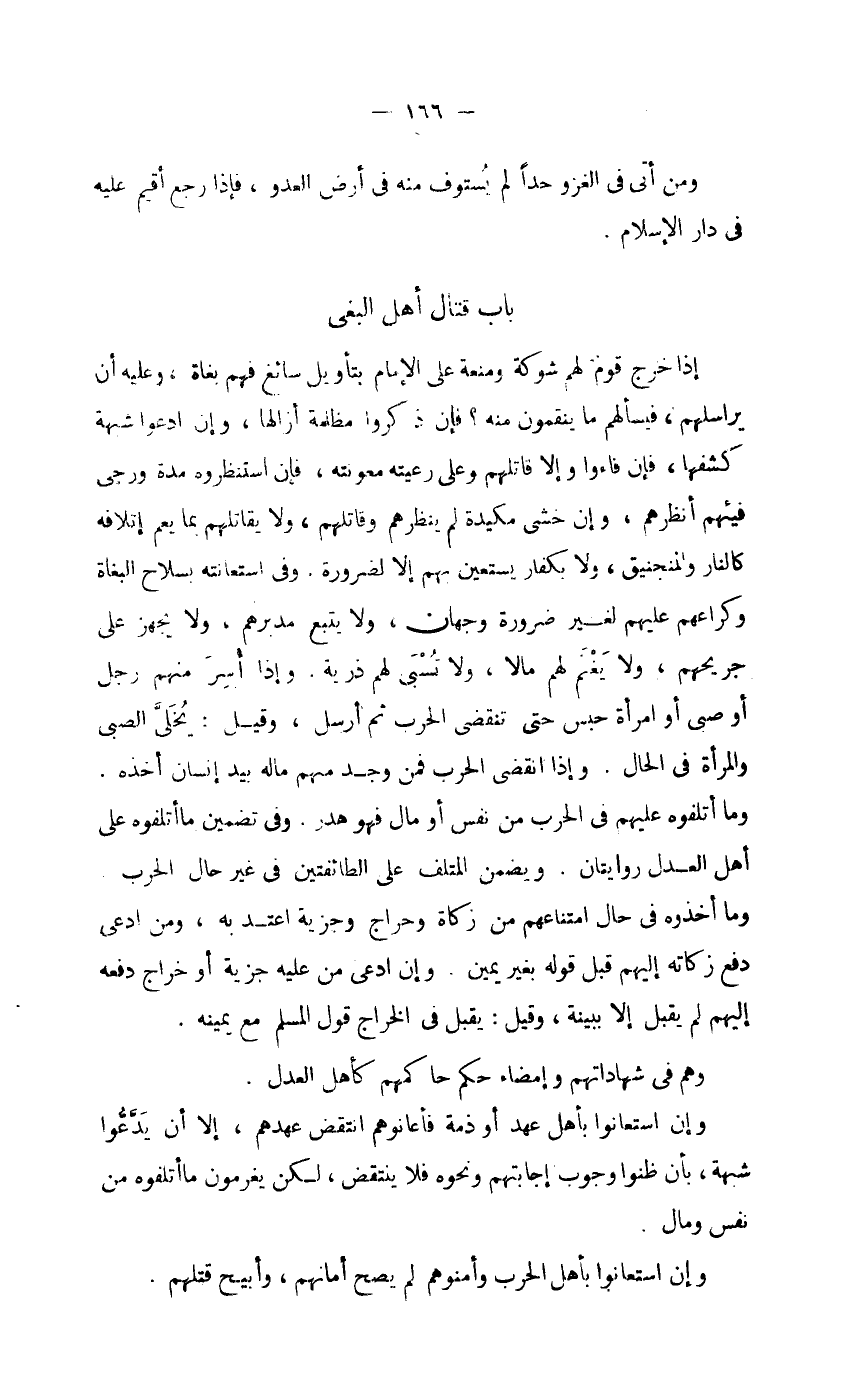 — ١٦٦ —
ومن أتى فى الغزو حداً لم يُستوف منه فى أرض العدو ، فإذا رجع أقيم عليه
فى دار الإسلام .
باب قتال أهل البغى
إذا خرج قوم لهم شوكة ومنعة على الإمام بتأويل سائغ فهم بغاة ، وعليه أن
يراسلهم ، فيسألهم ما ينقمون منه ؟ فإن ذكروا مظلمة أزالها ، وإن ادعوا شبهة
كشفها ، فإن فاءوا وإلا قاتلهم وعلى رعيته معونته ، فإن استنظروه مدة ورجى
فيئهم أنظرهم ، وإن خشى مكيدة لم ينظرهم وقاتلهم ، ولا يقاتلهم بما يعم إتلافه
كالنار والمنجنيق ، ولا بكفار يستعين بهم إلا لضرورة . وفى استعانته بسلاح البغاة
وكراعهم عليهم لغير ضرورة وجهان ، ولا يتبع مدبرهم ، ولا يجهز على
جريحهم ، ولا يَغْنَم لهم مالا ، ولا تُسْبَى لهم ذرية . وإذا أُسِرَ منهم رجل
أو صبى أو امرأة حبس حتى تنقضى الحرب ثم أرسل ، وقيل : يُخَلىَّ الصبى
والمرأة فى الحال . وإذا انقضى الحرب فمن وجد منهم ماله بيد إنسان أخذه .
وما أتلفوه عليهم فى الحرب من نفس أو مال فهو هدر . وفى تضمين ما أتلفوه على
أهل العدل روايتان . ويضمن المتلف على الطائفتين فى غير حال الحرب .
وما أخذوه فى حال امتناعهم من زكاة وخراج وجزية اعتد به ، ومن ادعى
دفع زكاته إليهم قبل قوله بغير يمين . وإن ادعى من عليه جزية أو خراج دفعه
إليهم لم يقبل إلا ببينة ، وقيل : يقبل فى الخراج قول المسلم مع يمينه .
وهم فى شهاداتهم وإمضاء حكم حاكمهم كأهل العدل .
وإن استعانوا بأهل عهد أو ذمة فأعانوهم انتقض عهدهم ، إلا أن يَدَّعُوا
شبهة ، بأن ظنوا وجوب إجابتهم ونحوه فلا ينتقض ، لكن يغرمون ما أتلفوه من
نفس ومال .
وإن استعانوا بأهل الحرب وأمنوهم لم يصح أمانهم ، وأبيح قتلهم .